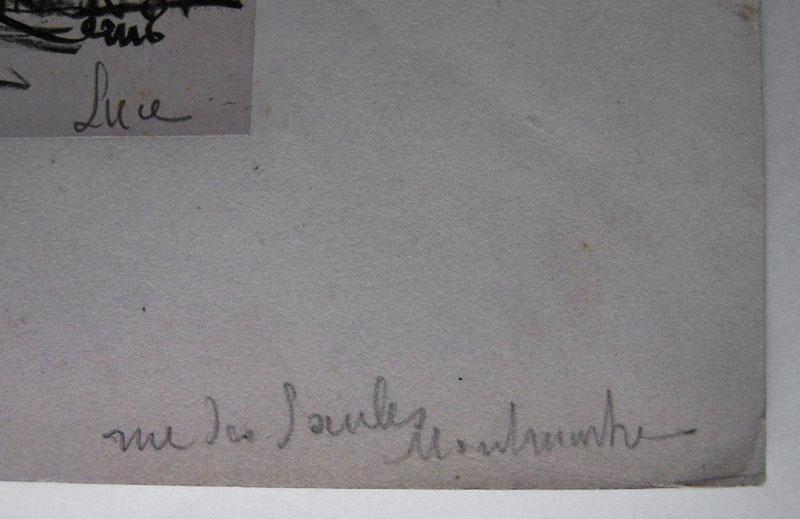 Luce
rue des Saules Montmartre